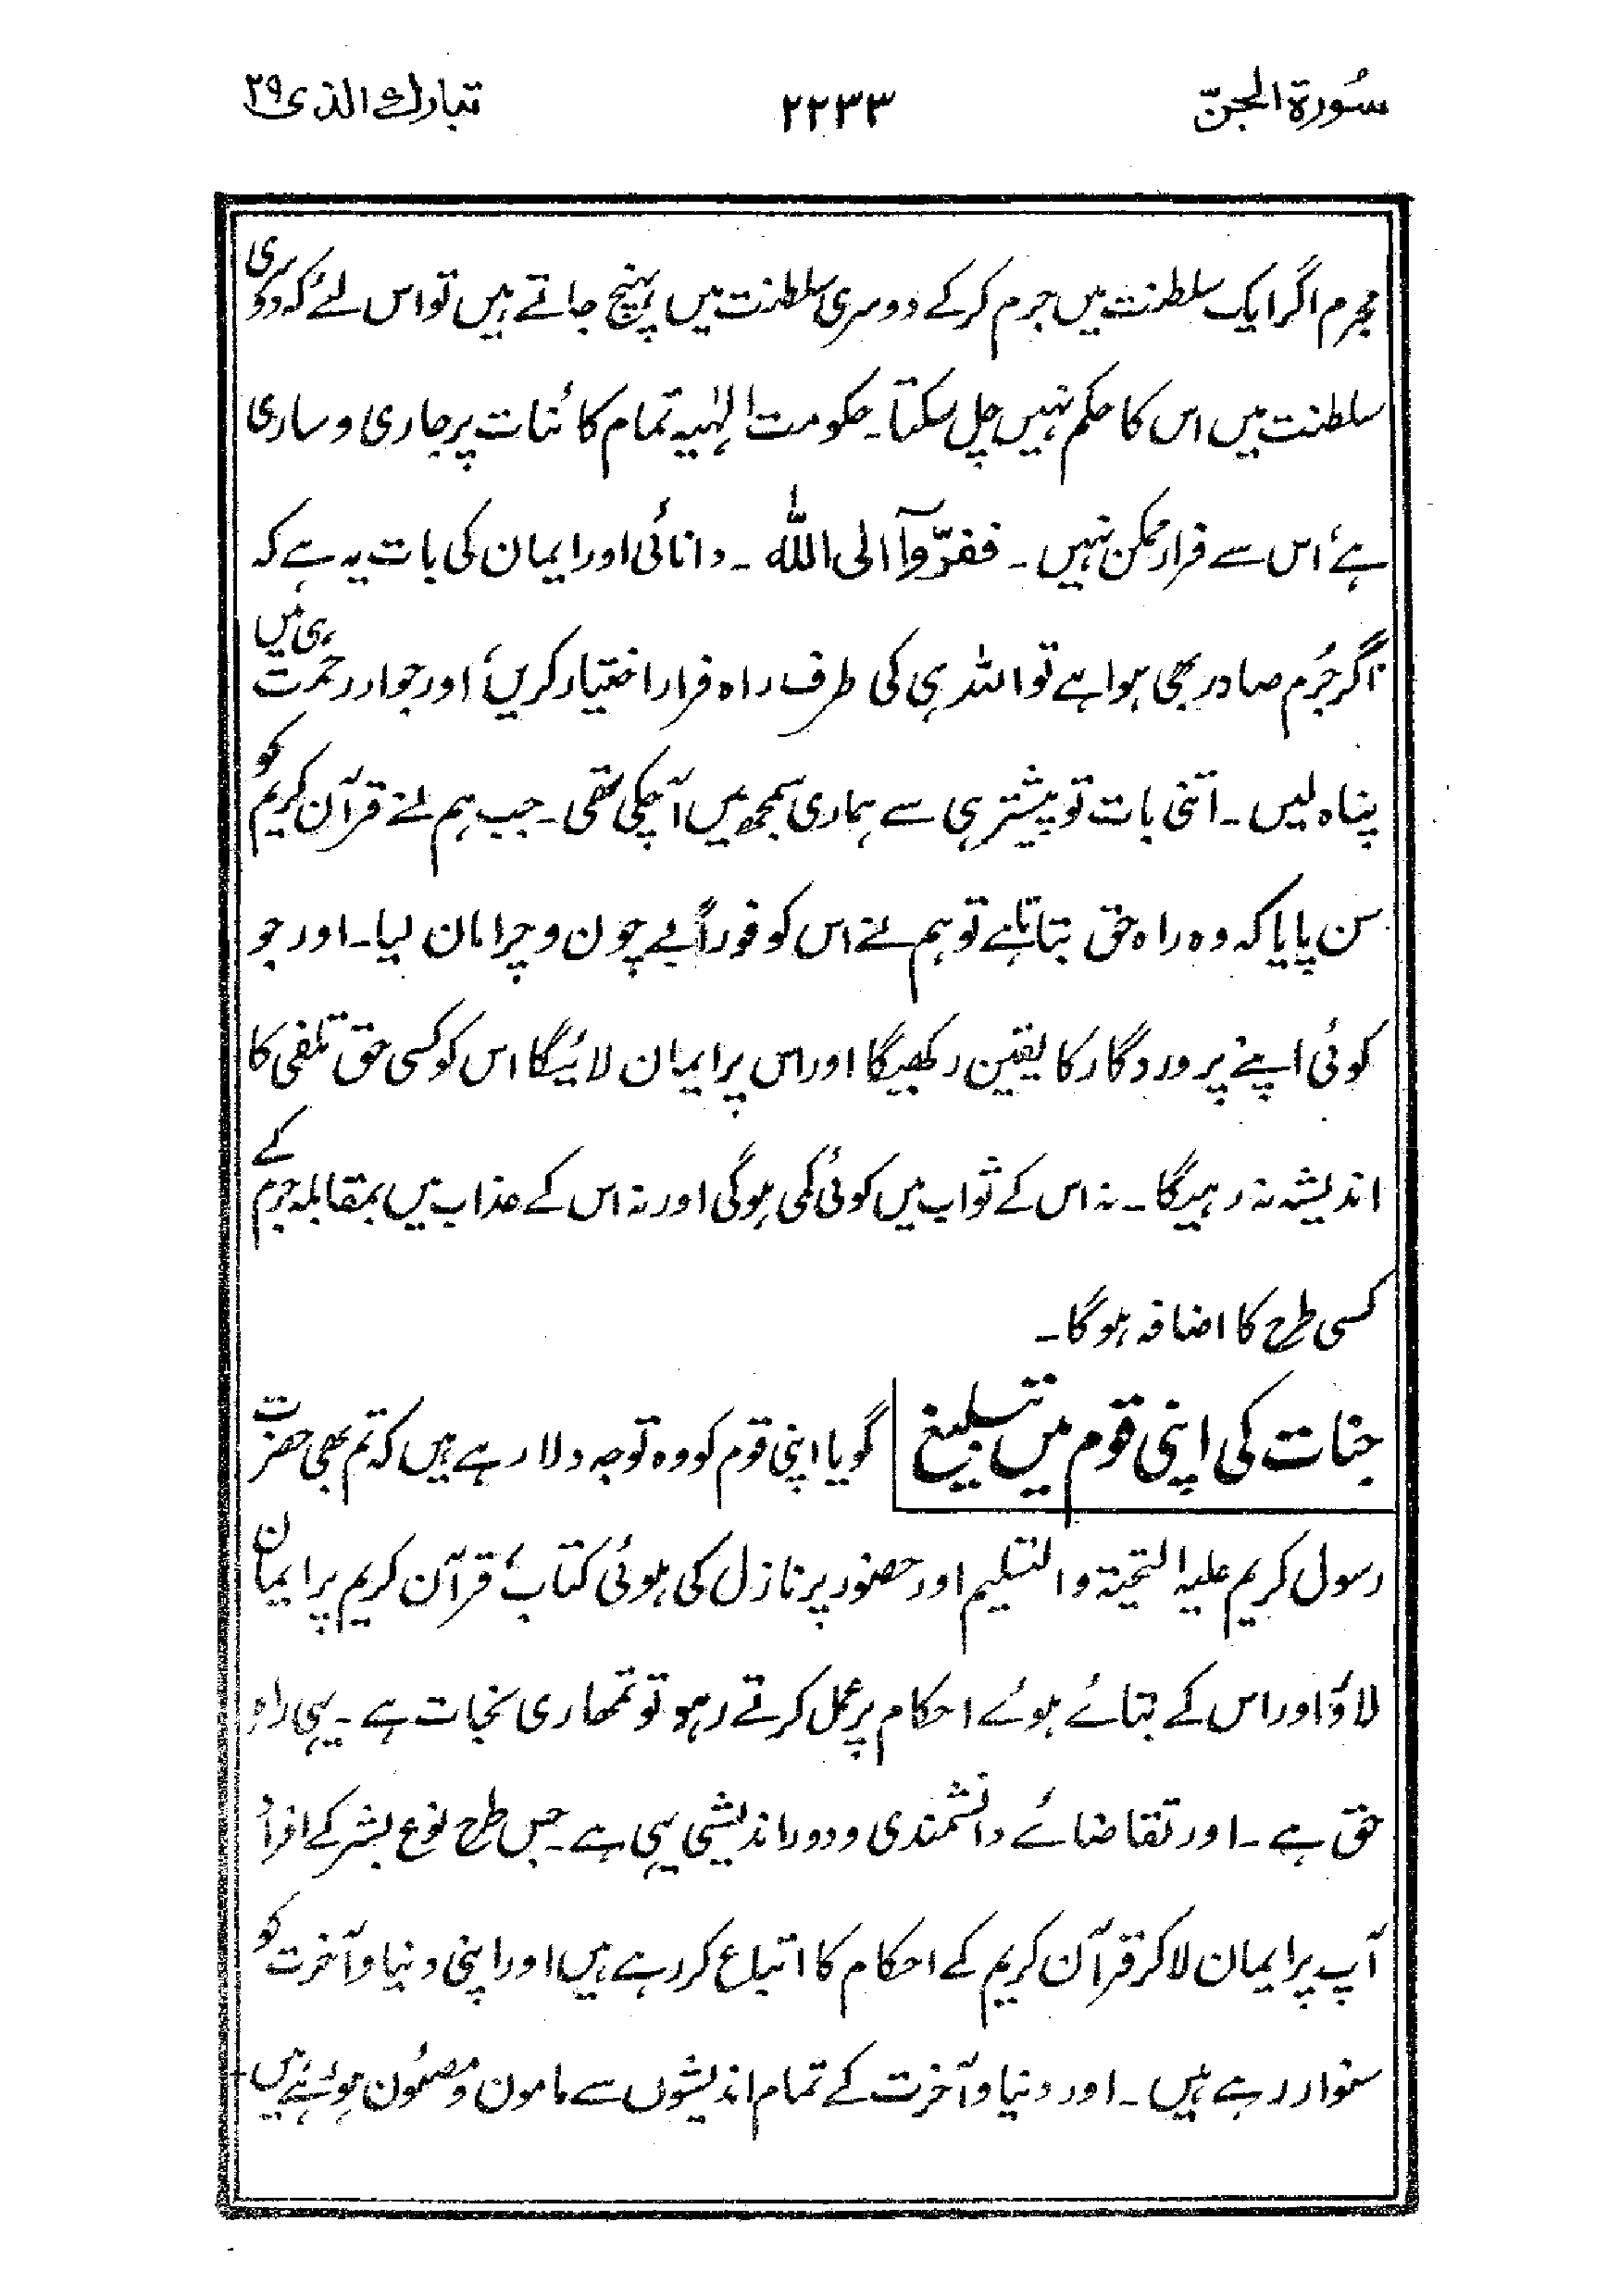 سُورۃ الجنّ ۲۲۳۳ تبارك الذی ۲۹
مجرم اگر ایک سلطنت میں جرم کرکے دوسری سلطنت میں پہنچ جاتے ہیں تو اس لئے کہ دوسری
سلطنت میں اس کا حکم نہیں چل سکتا۔ حکومت الہٰیہ تمام کائنات پر جاری و ساری
ہے، اس سے فرار ممکن نہیں۔ ففرّوآ الی اللہ ۔ دانائی اور ایمان کی بات یہ ہے کہ
اگر جُرم صادر بھی ہوا ہے تو اللہ ہی کی طرف راہ فرار اختیار کریں، اور جوار رحمت ہی میں
پناہ لیں۔ اتنی بات تو پیشتر ہی سے ہماری سمجھ میں آچکی تھی۔ جب ہم نے قرآن کریم کو
سن پایا کہ وہ راہ حق بتاتا ہے تو ہم نے اس کو فوراً بے چون و چرا مان لیا۔ اور جو
کوئی اپنے پروردگار کا یقین رکھیگا اور اس پر ایمان لائیگا اس کو کسی حق تلفی کا
اندیشہ نہ رہیگا۔ نہ اس کے ثواب میں کوئی کمی ہوگی اور نہ اس کے عذاب میں بمقابلہ جرم کے
کسی طرح کا اضافہ ہوگا۔
جنات کی اپنی قوم میں تبلیغ گویا اپنی قوم کو وہ توجہ دلا رہے ہیں کہ تم بھی حضرت
رسول کریم علیہ التحیۃ والتسلیم اور حضور پر نازل کی ہوئی کتاب، قرآن کریم پر ایمان
لاؤ اور اس کے بتائے ہوئے احکام پر عمل کرتے رہو تو تمھاری نجات ہے۔ یہی راہ
حق ہے۔ اور تقاضائے دانشمندی و دوراندیشی یہی ہے۔ جس طرح نوع بشر کے افراد
آپ پر ایمان لاکر قرآن کریم کے احکام کا اتباع کر رہے ہیں اور اپنی دنیا و آخرت کو
سنوار رہے ہیں۔ اور دنیا و آخرت کے تمام اندیشوں سے مامون و مصئون ہوئے ہیں